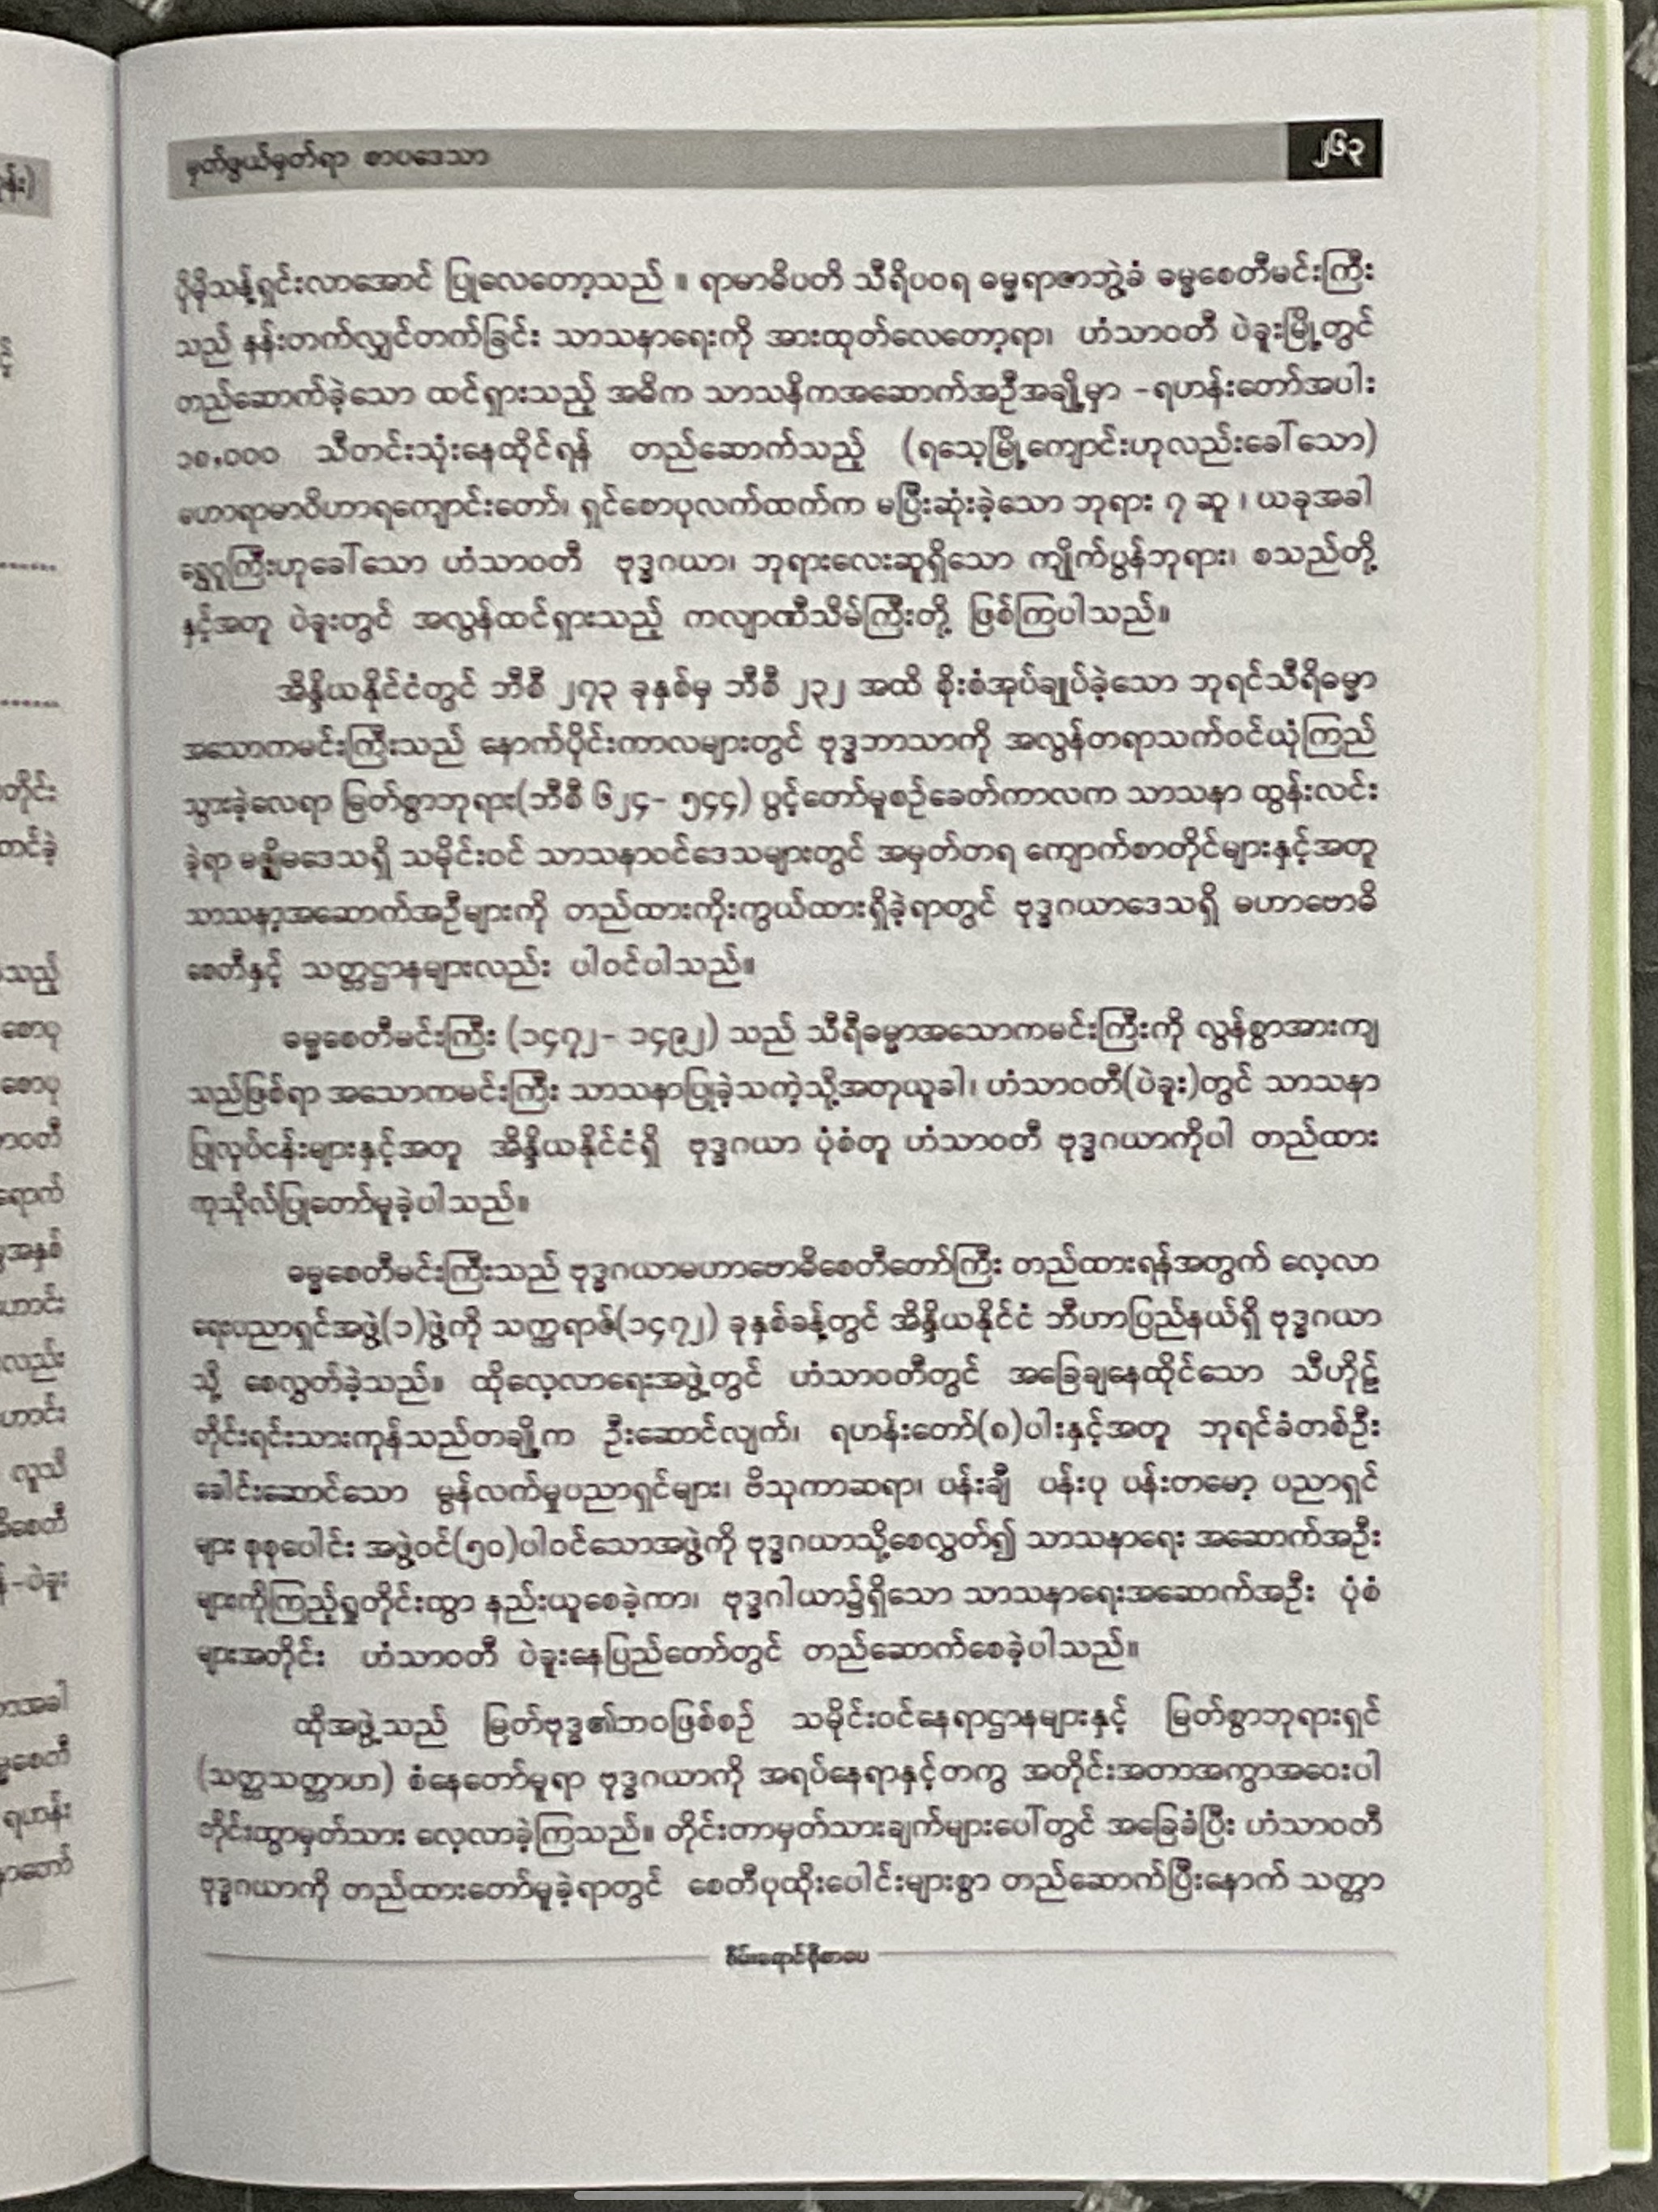 မှတ်ဖွယ်မှတ်ရာ စာပဒေသာ
၂၆၃
ပိုမိုသန့်ရှင်းလာအောင် ပြုလေတော့သည် ။ ရာမာဓိပတိ သီရိပဝရ ဓမ္မရာဇာဘွဲ့ခံ ဓမ္မစေတီမင်းကြီး
သည် နန်းတက်လျှင်တက်ခြင်း သာသနာရေးကို အားထုတ်လေတော့ရာ၊ ဟံသာဝတီ ပဲခူးမြို့တွင်
တည်ဆောက်ခဲ့သော ထင်ရှားသည့် အဓိက သာသနိကအဆောက်အဦအချို့မှာ -ရဟန်းတော်အပါး
၁၈,၀၀၀ သီတင်းသုံးနေထိုင်ရန် တည်ဆောက်သည့် (ရသေ့မြို့ကျောင်းဟုလည်းခေါ်သော)
မဟောရာမာဝိဟာရကျောင်းတော်၊ ရှင်စောပုလက်ထက်က မပြီးဆုံးခဲ့သော ဘုရား ၇ ဆူ ၊ ယခုအခါ
ရွှေဂူကြီးဟုခေါ်သော ဟံသာဝတီ ဗုဒ္ဓဂယာ၊ ဘုရားလေးဆူရှိသော ကျိုက်ပွန်ဘုရား၊ စသည်တို့
နှင့်အတူ ပဲခူးတွင် အလွန်ထင်ရှားသည့် ကလျာဏီသိမ်ကြီးတို့ ဖြစ်ကြပါသည်။
အိန္ဒိယနိုင်ငံတွင် ဘီစီ ၂၇၃ ခုနှစ်မှ ဘီစီ ၂၃၂ အထိ စိုးစံအုပ်ချုပ်ခဲ့သော ဘုရင်သီရိဓမ္မာ
အသောကမင်းကြီးသည် နောက်ပိုင်းကာလများတွင် ဗုဒ္ဓဘာသာကို အလွန်တရာသက်ဝင်ယုံကြည်
သွားခဲ့လေရာ မြတ်စွာဘုရား(ဘီစီ ၆၂၄- ၅၄၄) ပွင့်တော်မူစဉ်ခေတ်ကာလက သာသနာ ထွန်းလင်း
ခဲ့ရာ မဇ္ဈိမဒေသရှိ သမိုင်းဝင် သာသနာဝင်ဒေသများတွင် အမှတ်တရ ကျောက်စာတိုင်များနှင့်အတူ
သာသနာ့အဆောက်အဦများကို တည်ထားကိုးကွယ်ထားရှိခဲ့ရာတွင် ဗုဒ္ဓဂယာဒေသရှိ မဟာဗောဓိ
စေတီနှင့် သတ္တဌာနများလည်း ပါဝင်ပါသည်။
ဓမ္မစေတီမင်းကြီး (၁၄၇၂- ၁၄၉၂) သည် သီရီဓမ္မာအသောကမင်းကြီးကို လွန်စွာအားကျ
သည်ဖြစ်ရာ အသောကမင်းကြီး သာသနာပြုခဲ့သကဲ့သို့အတုယူခါ၊ ဟံသာဝတီ(ပဲခူး)တွင် သာသနာ
ပြုလုပ်ငန်းများနှင့်အတူ အိန္ဒိယနိုင်ငံရှိ ဗုဒ္ဓဂယာ ပုံစံတူ ဟံသာဝတီ ဗုဒ္ဓဂယာကိုပါ တည်ထား
ကုသိုလ်ပြုတော်မူခဲ့ပါသည်။
ဓမ္မစေတီမင်းကြီးသည် ဗုဒ္ဓဂယာမဟာဗောဓိစေတီတော်ကြီး တည်ထားရန်အတွက် လေ့လာ
ရေးပညာရှင်အဖွဲ့(၁)ဖွဲ့ကို သက္ကရာဇ်(၁၄၇၂) ခုနှစ်ခန့်တွင် အိန္ဒိယနိုင်ငံ ဘီဟာပြည်နယ်ရှိ ဗုဒ္ဓဂယာ
သို့ စေလွှတ်ခဲ့သည်။ ထိုလေ့လာရေးအဖွဲ့တွင် ဟံသာဝတီတွင် အခြေချနေထိုင်သော သီဟိုဠ်
တိုင်းရင်းသားကုန်သည်တချို့က ဦးဆောင်လျက်၊ ရဟန်းတော်(၈)ပါးနှင့်အတူ ဘုရင်ခံတစ်ဦး
ခေါင်းဆောင်သော မွန်လက်မှုပညာရှင်များ၊ ဗိသုကာဆရာ၊ ပန်းချီ ပန်းပု ပန်းတမော့ ပညာရှင်
များ စုစုပေါင်း အဖွဲ့ဝင်(၅၀)ပါဝင်သောအဖွဲ့ကို ဗုဒ္ဓဂယာသို့စေလွှတ်၍ သာသနာရေး အဆောက်အဦး
များကိုကြည့်ရှုတိုင်းထွာ နည်းယူစေခဲ့ကာ၊ ဗုဒ္ဓဂါယာ၌ရှိသော သာသနာရေးအဆောက်အဦး ပုံစံ
များအတိုင်း ဟံသာဝတီ ပဲခူးနေပြည်တော်တွင် တည်ဆောက်စေခဲ့ပါသည်။
ထိုအဖွဲ့သည် မြတ်ဗုဒ္ဓ၏ဘဝဖြစ်စဉ် သမိုင်းဝင်နေရာဌာနများနှင့် မြတ်စွာဘုရားရှင်
(သတ္တသတ္တာဟ) စံနေတော်မူရာ ဗုဒ္ဓဂယာကို အရပ်နေရာနှင့်တကွ အတိုင်းအတာအကွာအဝေးပါ
တိုင်းထွာမှတ်သား လေ့လာခဲ့ကြသည်။ တိုင်းတာမှတ်သားချက်များပေါ်တွင် အခြေခံပြီး ဟံသာဝတီ
ဗုဒ္ဓဂယာကို တည်ထားတော်မူခဲ့ရာတွင် စေတီပုထိုးပေါင်းများစွာ တည်ဆောက်ပြီးနောက် သတ္တာ